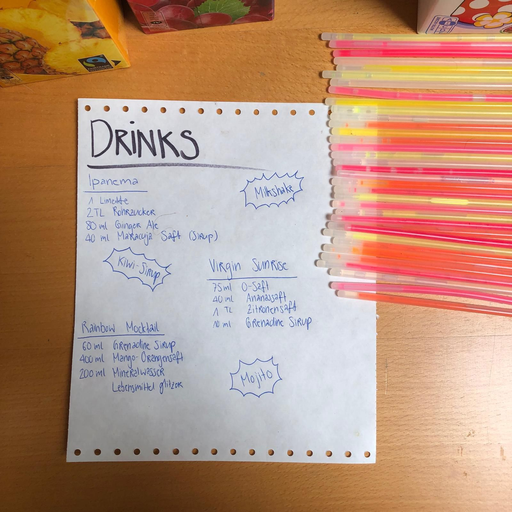 DRINKS
Ipanema
1 Limette
2 TL Rohrzucker
80 ml Ginger Ale
40 ml Maracuja Saft (Sirup)
Milkshake
Kiwi-Sirup
Virgin Sunrise
75 ml O-Saft
40 ml Ananassaft
1 TL Zitronensaft
10 ml Grenadine Sirup
Rainbow Mocktail
60 ml Grenadine Sirup
400 ml Mango-Orangensaft
200 ml Mineralwasser
Lebensmittel glitzer
Mojito